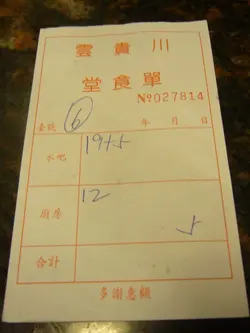 雲貴川
堂食單
№027814
臺號 6 年 月 日
水吧 19+5
廚房 12
5
合計
多謝惠顧